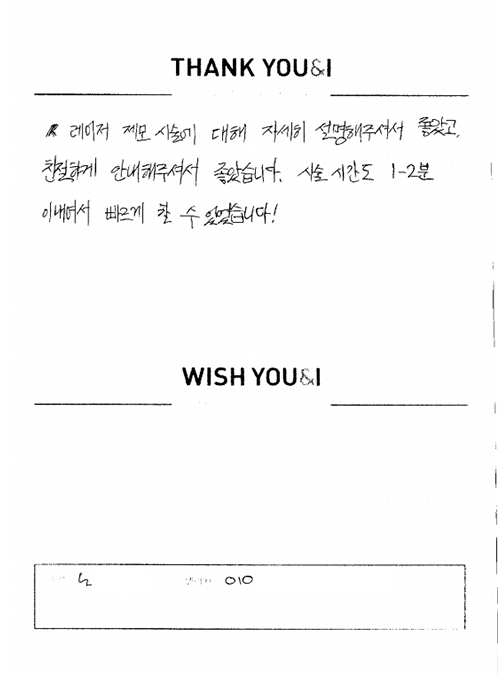 THANK YOU&I
레이저 제모 시술에 대해 자세히 설명해주셔서 좋았고,
친절하게 안내해주셔서 좋았습니다. 시술 시간도 1-2분
이내여서 빠르게 할 수 있었습니다!
WISH YOU&I
010